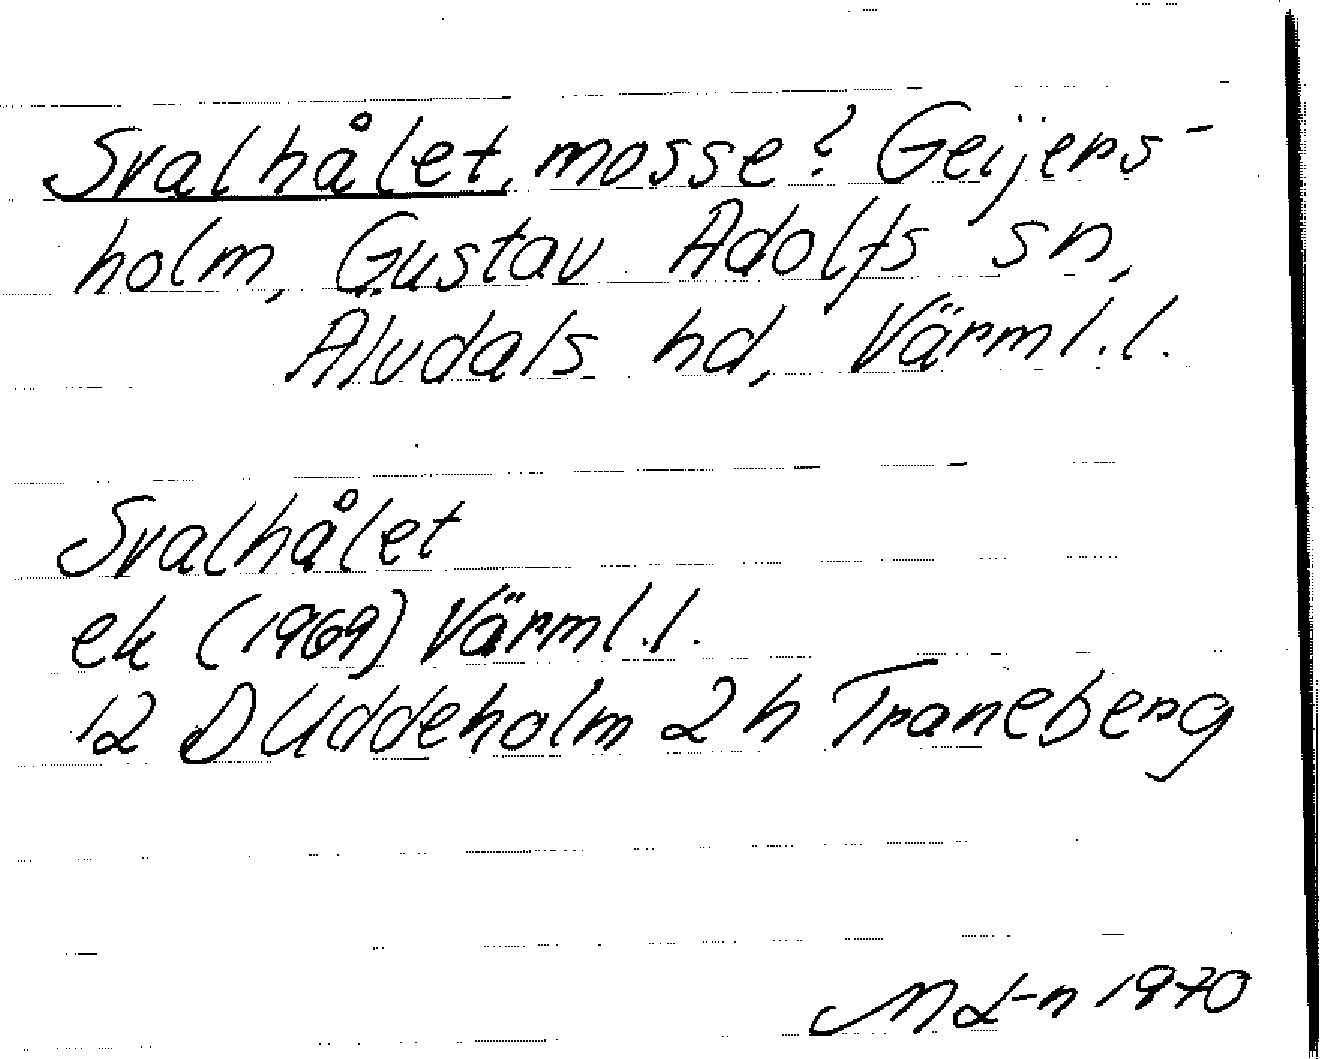 Svalhålet, mosse? Geijers-
holm, Gustav Adolfs sn,
Älvdals hd, Värml.l.
Svalhålet
ek (1969) Värml.l.
12 D Uddeholm 2h Traneberg
M L-n 1970